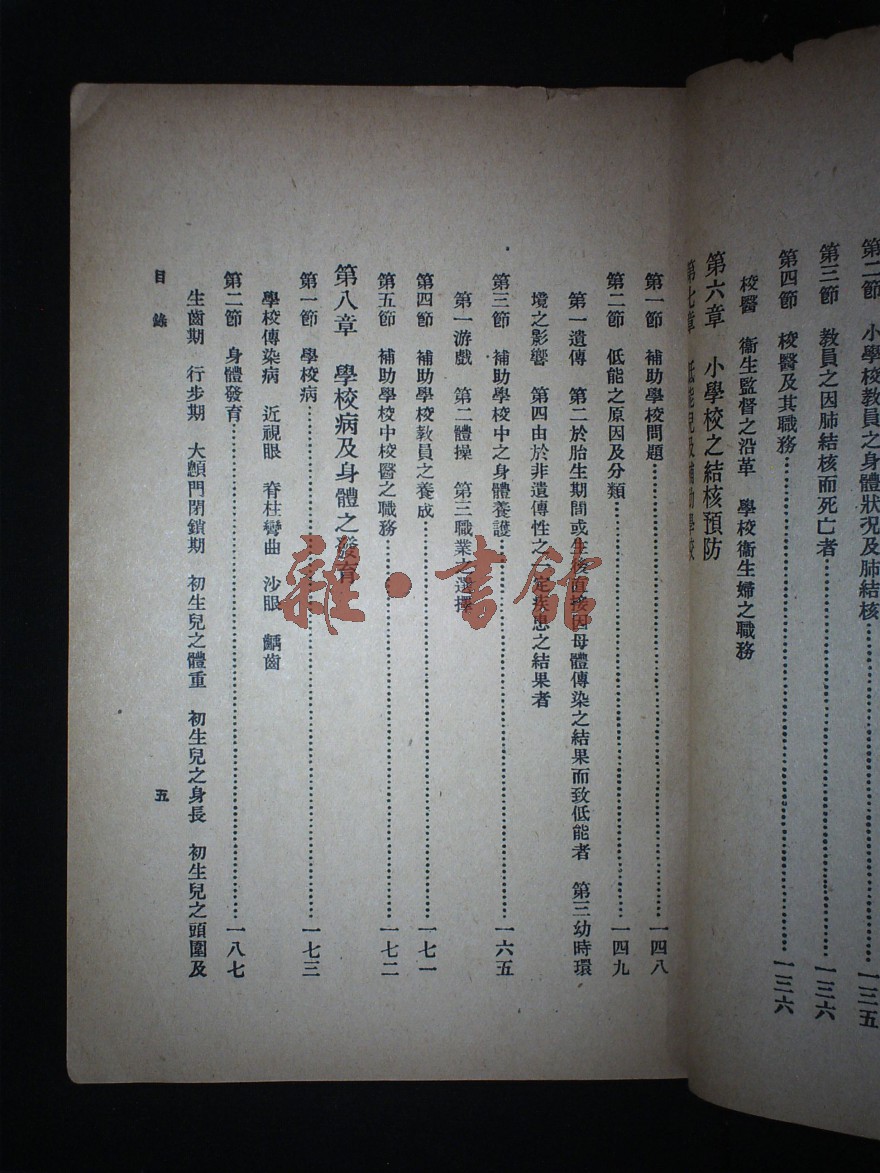 第二節 小學校教員之身體狀況及肺結核……一三五
第三節 教員之因肺結核而死亡者……一三六
第四節 校醫及其職務……一三六
校醫 衞生監督之沿革 學校衞生婦之職務
第六章 小學校之結核預防
第七章 低能兒及補助學校
第一節 補助學校問題……一四八
第二節 低能之原因及分類……一四九
第一遺傳 第二於胎生期間或生後直接因母體傳染之結果而致低能者 第三幼時環
境之影響 第四由於非遺傳性之一定疾患之結果者
第三節 補助學校中之身體養護……一六五
第一游戲 第二體操 第三職業之選擇
第四節 補助學校教員之養成……一七一
第五節 補助學校中校醫之職務……一七二
第八章 學校病及身體之發育
第一節 學校病……一七三
學校傳染病 近視眼 脊柱彎曲 沙眼 齲齒
第二節 身體發育……一八七
生齒期 行步期 大顖門閉鎖期 初生兒之體重 初生兒之身長 初生兒之頭圍及
目錄 五
雜·書館